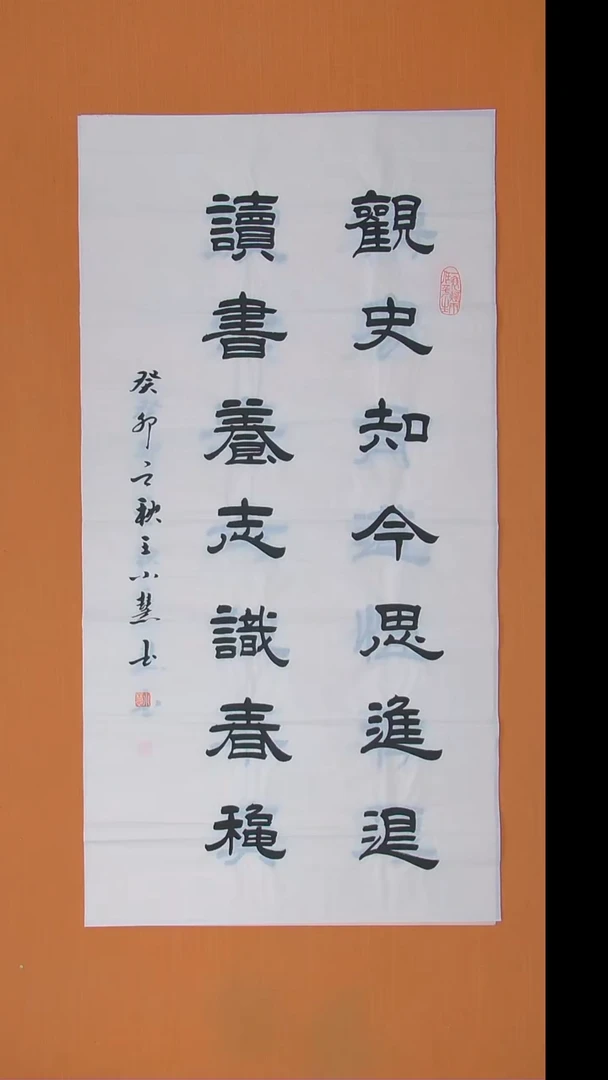 觀史知今思進退
讀書養志識春穐
癸卯之秋王小慧书